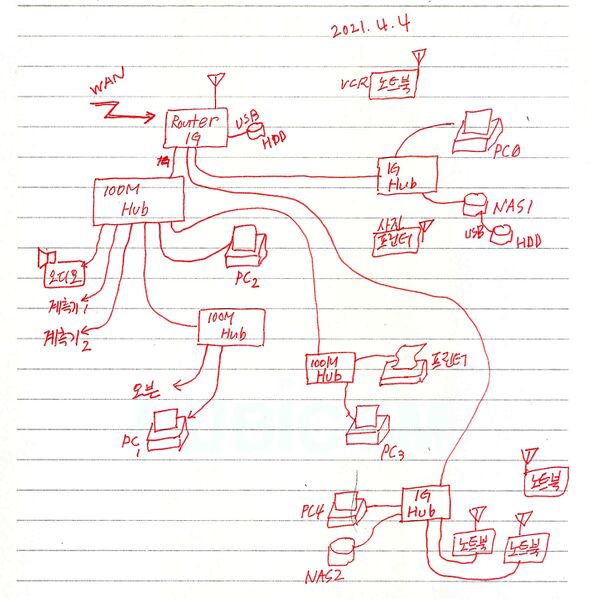 2021.4.4
WAN
VCR 노트북
Router
1G
USB
HDD
PC0
1G
Hub
100M
Hub
NAS1
USB
HDD
사진
프린터
오디오
PC2
계측기1
계측기2
100M
Hub
100M
Hub
프린터
오븐
PC1
PC3
노트북
PC4
1G
Hub
노트북
노트북
NAS2